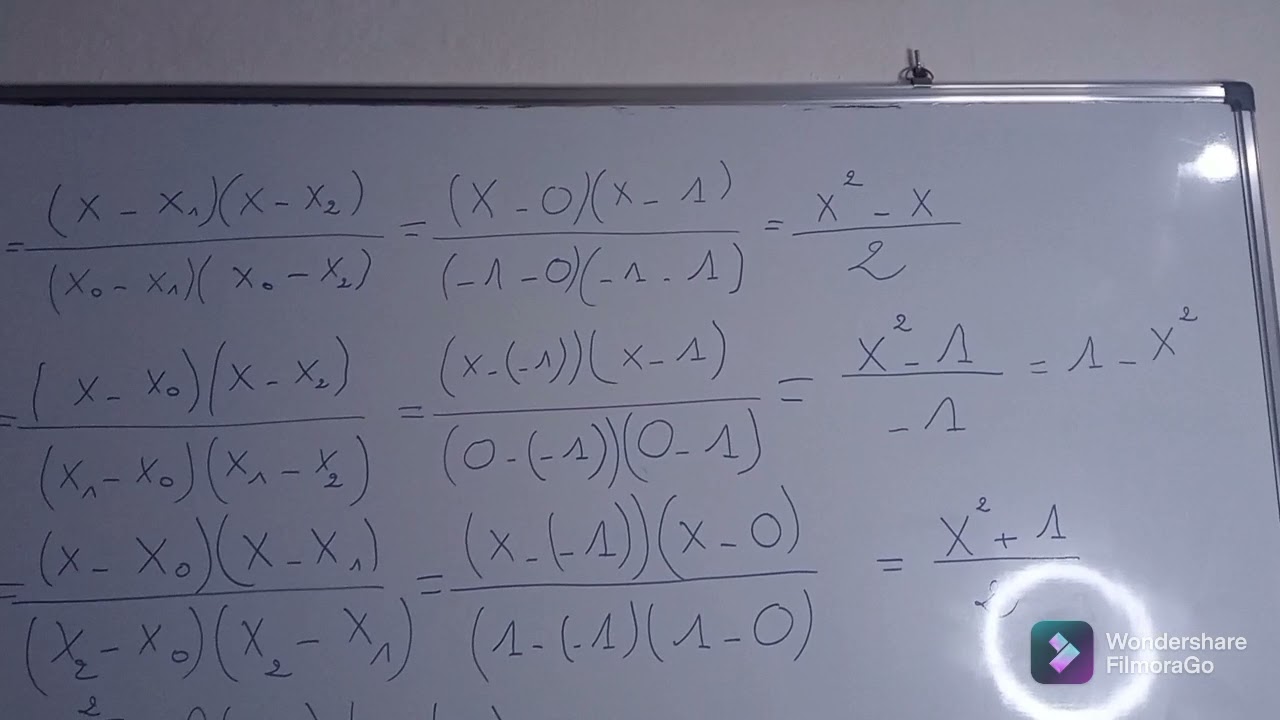 = (x - x₁)(x - x₂) / (x₀ - x₁)(x₀ - x₂) = (x - 0)(x - 1) / (-1 - 0)(-1 - 1) = x² - x / 2
= (x - x₀)(x - x₂) / (x₁ - x₀)(x₁ - x₂) = (x - (-1))(x - 1) / (0 - (-1))(0 - 1) = x² - 1 / -1 = 1 - x²
= (x - x₀)(x - x₁) / (x₂ - x₀)(x₂ - x₁) = (x - (-1))(x - 0) / (1 - (-1)(1 - 0) = x² + 1 / 2
Wondershare
FilmoraGo